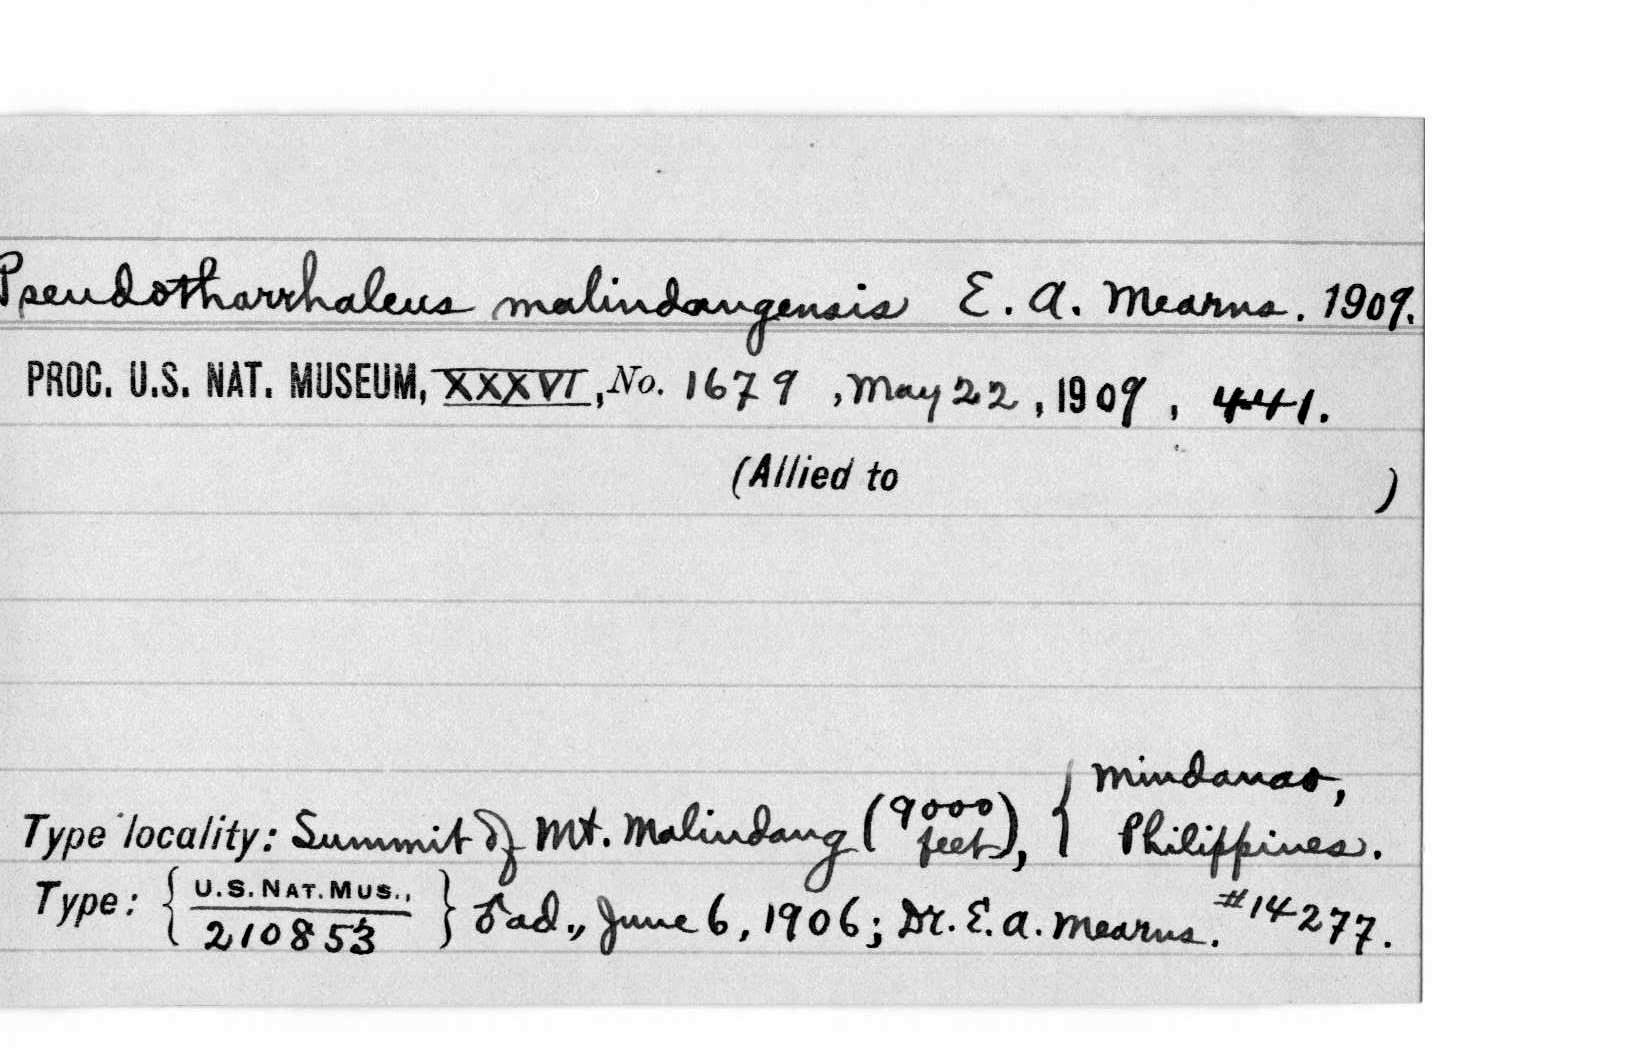 Pseudotharrhaleus malindangensis E. A. Mearns. 1909.
PROC. U.S. NAT. MUSEUM, XXXVI, No. 1679, May 22, 1909, 441.
(Allied to )
Mindanao,
Type locality: Summit of Mt. Malindang (9000 feet), { Philippines.
Type: { U.S. NAT. MUS., 210853 } ♂ ad., June 6, 1906; Dr. E. A. Mearns. #14277.